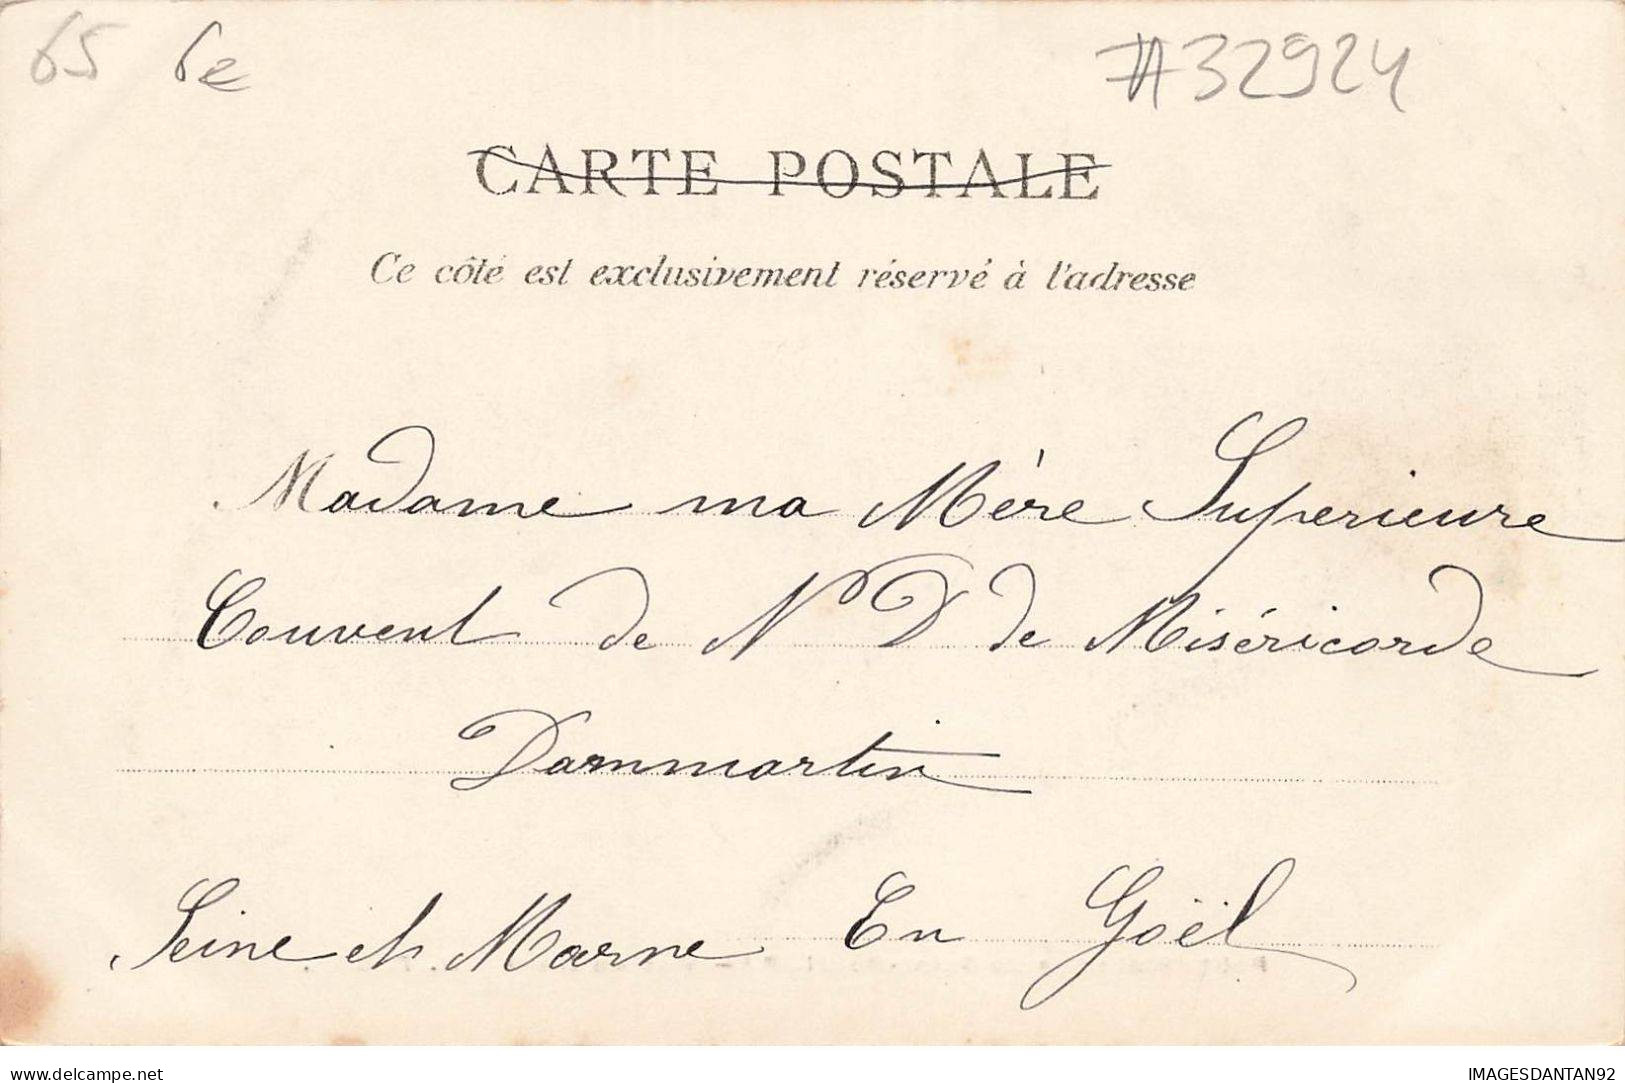 65 6e #32924
CARTE POSTALE
Ce côté est exclusivement réservé à l'adresse
Madame ma Mère Superieure
Couvent de N D de Miséricorde
Dammartin
Seine et Marne En Goël
www.delcampe.net IMAGESDANTAN92